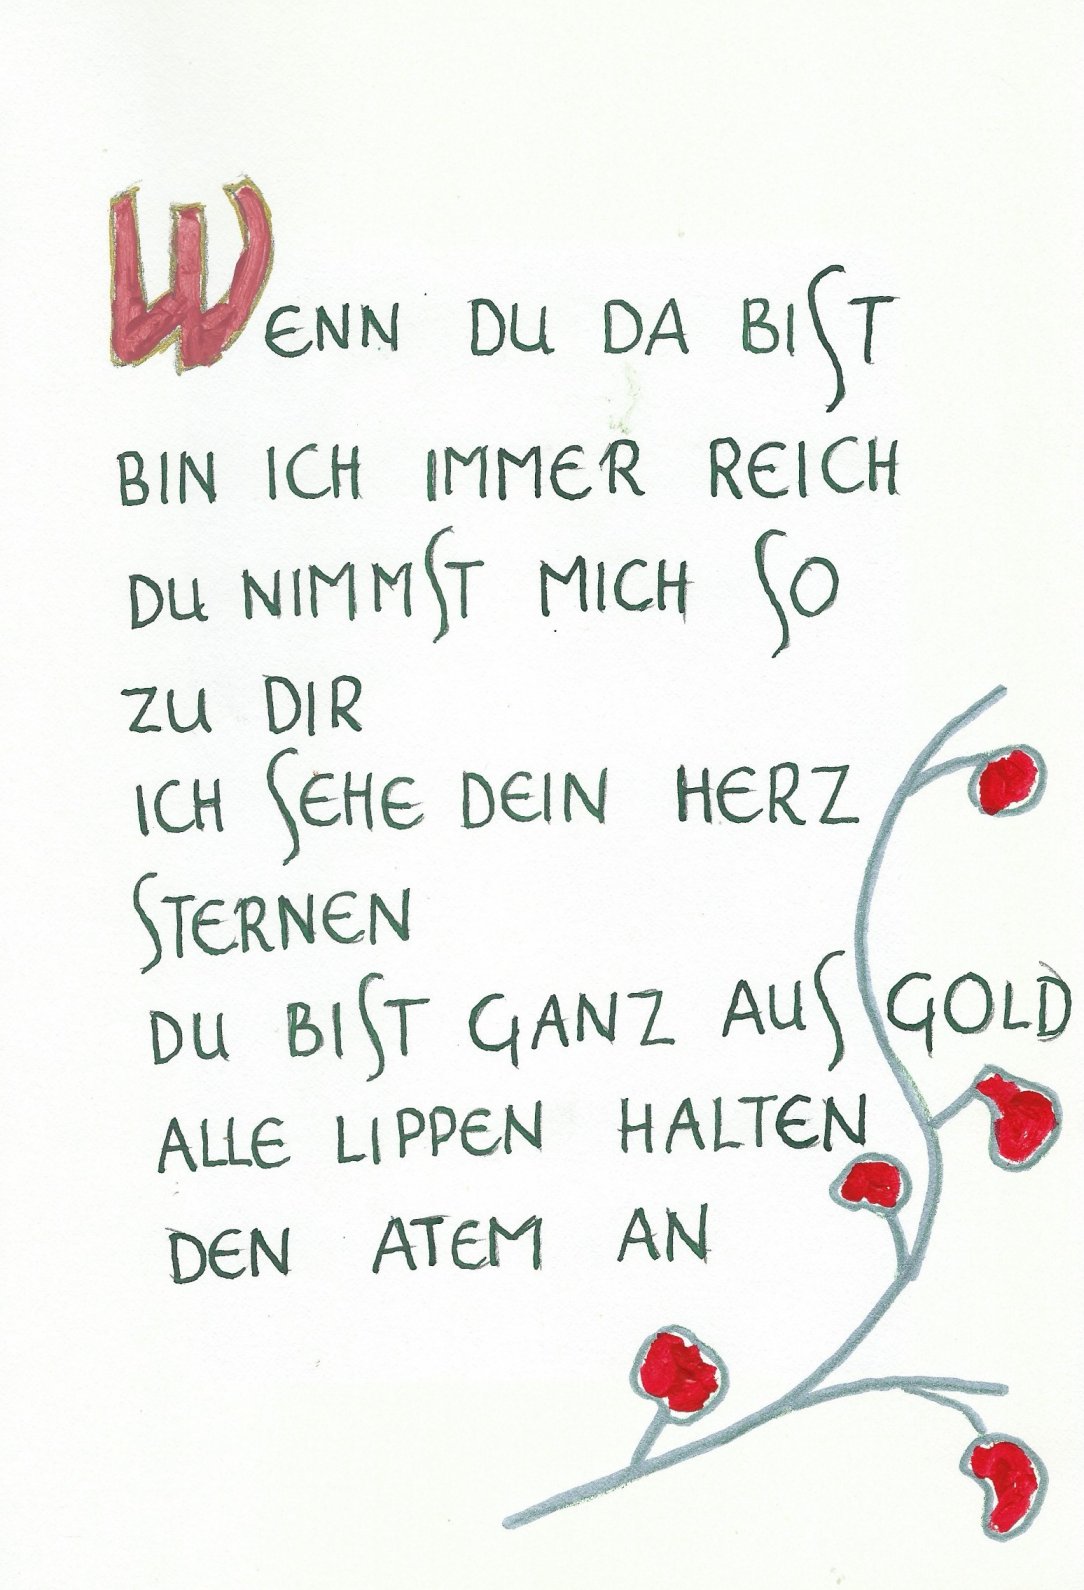 WENN DU DA BIST
BIN ICH IMMER REICH
DU NIMMST MICH SO
ZU DIR
ICH SEHE DEIN HERZ
STERNEN
DU BIST GANZ AUS GOLD
ALLE LIPPEN HALTEN
DEN ATEM AN